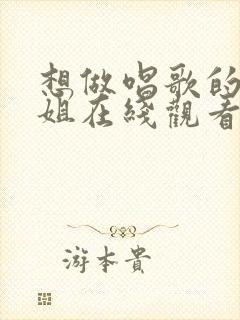 想做唱歌的
姐在綫觀看
游本貴